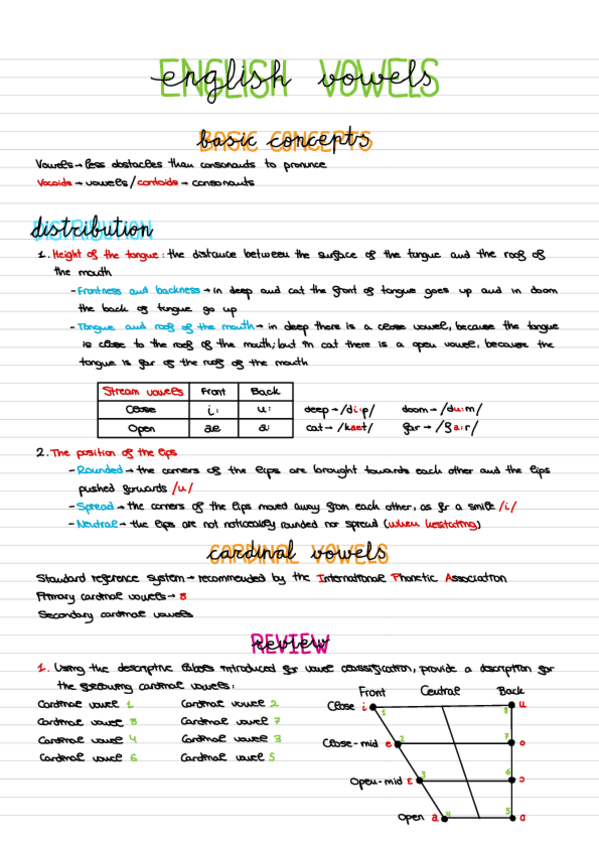 english vowels
basic concepts
Vowels → less obstacles than consonants to pronunce
Vocoids → vowels / contoids → consonants
distribution
1. Height of the tongue: the distance between the surface of the tongue and the roof of
the mouth
- Frontness and backness → in deep and cat the front of tongue goes up and in doom
the back of tongue go up
- Tongue and roof of the mouth → in deep there is a close vowel, because the tongue
is close to the roof of the mouth; but in cat there is a open vowel, because the
tongue is far of the roof of the mouth
Stream vowels Front Back
Close i: u:
Open ae a:
deep → /di:p/ doom → /du:m/
cat → /kaet/ far → /fa:r/
2. The position of the lips
- Rounded → the corners of the lips are brought towards each other and the lips
pushed forwards /u/
- Spread → the corners of the lips moved away from each other, as fr a smile /i/
- Neutral → the lips are not noticeably rounded nor spread (when hesitating)
cardinal vowels
Standard reference system → recommended by the International Phonetic Association
Primary cardinal vowels → 8
Secondary cardinal vowels
review
1. Using the descriptive labels introduced for vowel classification, provide a description for
the following cardinal vowels:
Cardinal vowel 1 Cardinal vowel 2
Cardinal vowel 8 Cardinal vowel 7
Cardinal vowel 4 Cardinal vowel 3
Cardinal vowel 6 Cardinal vowel 5
Front Central Back
Close i 1 8 u
Close-mid e 2 7 o
Open-mid ɛ 3 6 ɔ
Open a 4 5 ɑ